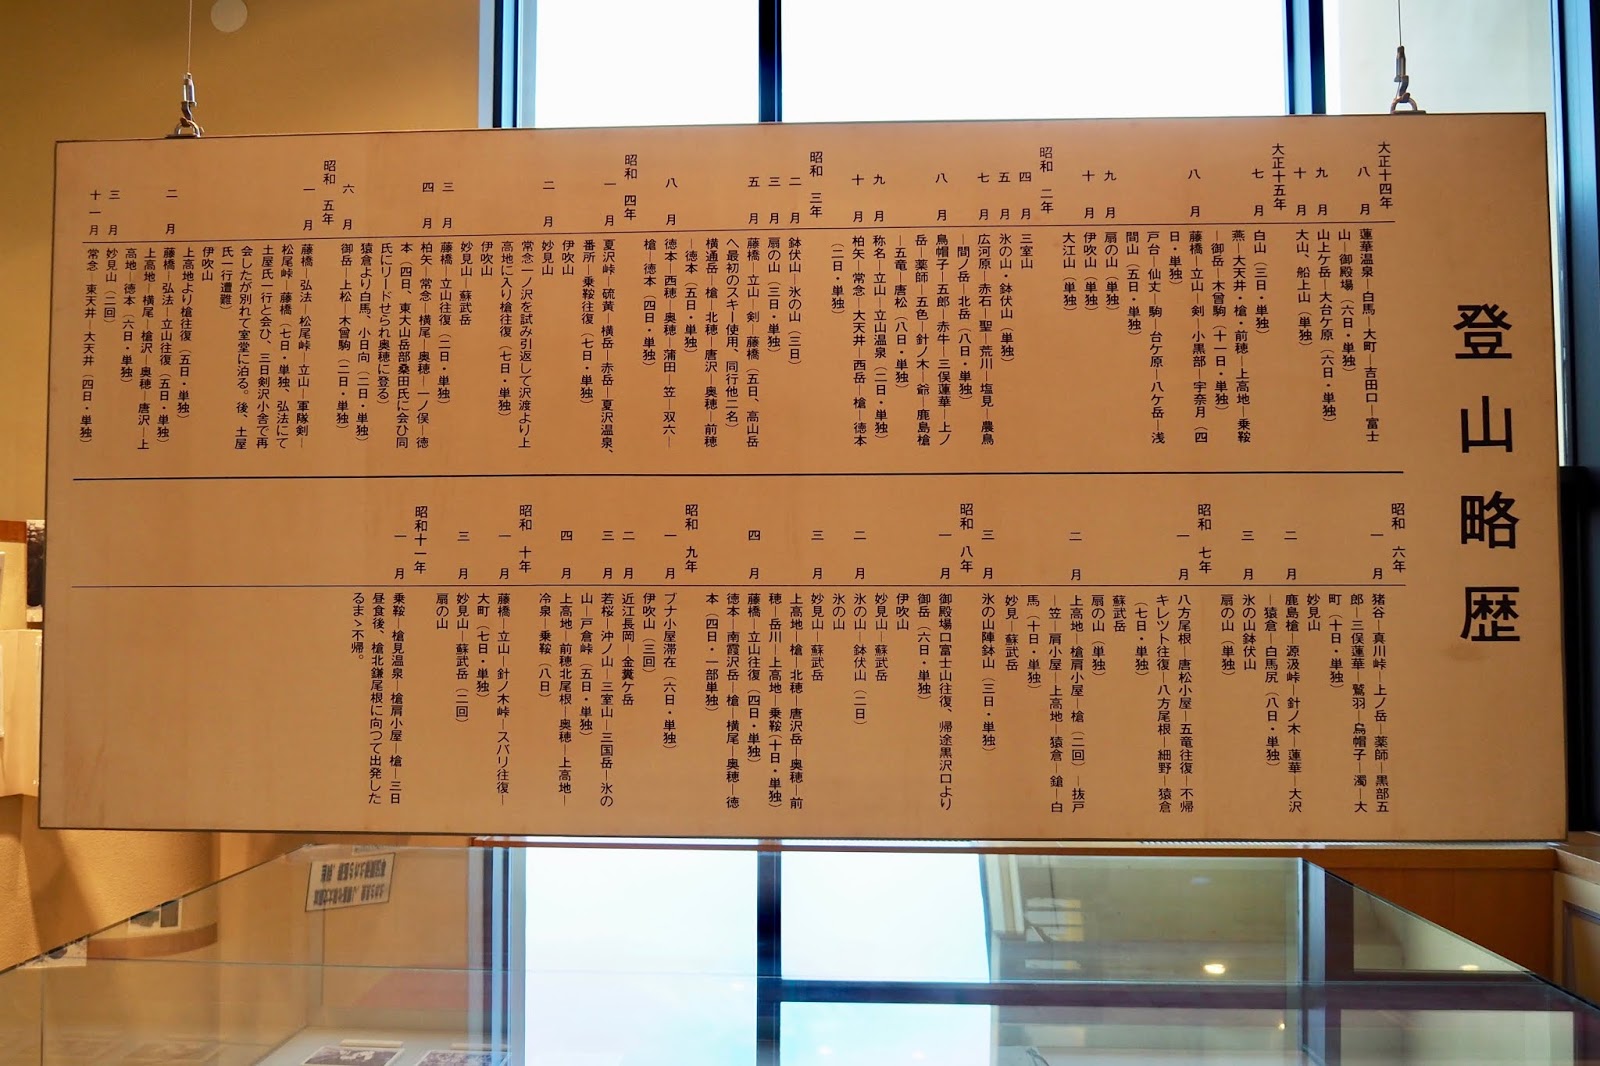 登山略歴
大正十四年
八月
蓮華温泉―白馬―大町―吉田口―富士
山―御殿場（六日・単独）
九月
山上ケ岳―大台ケ原（六日・単独）
十月
大山、船上山（単独）
大正十五年
七月
白山（三日・単独）
燕―大天井・槍・前穂―上高地―乗鞍
―御岳―木曽駒（十一日・単独）
八月
藤橋―立山―剣―小黒部―宇奈月（四
日・単独）
戸台―仙丈―駒―台ケ原―八ケ岳―浅
間山（五日・単独）
九月
扇の山（単独）
十月
伊吹山（単独）
大江山（単独）
昭和二年
四月
三室山
五月
氷の山・鉢伏山（単独）
七月
広河原―赤石―聖―荒川―塩見―農鳥
―間ノ岳―北岳（八日・単独）
八月
烏帽子―五郎―赤牛―三俣蓮華―上ノ
岳―薬師―五色―針ノ木―爺―鹿島槍
―五竜―唐松（八日・単独）
九月
称名―立山―立山温泉（二日・単独）
十月
柏矢―常念―大天井―西岳―槍―徳本
（二日・単独）
昭和三年
二月
鉢伏山―氷の山（三日）
三月
扇の山（三日・単独）
五月
藤橋―立山―剣―藤橋（五日、高山岳
へ最初のスキー使用、同行他二名）
横通岳―槍―北穂―唐沢―奥穂―前穂
―徳本（五日・単独）
八月
徳本―西穂―奥穂―蒲田―笠―双六―
槍―徳本（四日・単独）
昭和四年
一月
夏沢峠―硫黄―横岳―赤岳―夏沢温泉、
番所―乗鞍往復（七日・単独）
伊吹山
二月
妙見山
常念一ノ沢を試み引返して沢渡より上
高地に入り槍往復（七日・単独）
伊吹山
妙見山―蘇武岳
三月
藤橋―立山往復（二日・単独）
四月
柏矢―常念―横尾―奥穂―一ノ俣―徳
本（四日、東大山岳部桑田氏に会ひ同
氏にリードせられ奥穂に登る）
猿倉より白馬、小日向（二日・単独）
六月
御岳―上松―木曽駒（二日・単独）
昭和五年
一月
藤橋―弘法―松尾峠―立山―軍隊剣―
松尾峠―藤橋（七日・単独、弘法にて
土屋氏一行と会ひ、三日剣沢小舎で再
会したが別れて室堂に泊る。後、土屋
氏一行遭難）
伊吹山
上高地より槍往復（五日・単独）
二月
藤橋―弘法―立山往復（五日・単独）
上高地―横尾―槍沢―奥穂―唐沢―上
高地―徳本（六日・単独）
三月
妙見山（二回）
十一月
常念―東天井―大天井（四日・単独）
昭和六年
一月
猪谷―真川峠―上ノ岳―薬師―黒部五
郎―三俣蓮華―鷲羽―烏帽子―濁―大
町（十日・単独）
妙見山
二月
鹿島槍―源汲峠―針ノ木―蓮華―大沢
―猿倉―白馬尻（八日・単独）
三月
氷の山鉢伏山
扇の山（単独）
昭和七年
一月
八方尾根―唐松小屋―五竜往復―不帰
キレット往復―八方尾根―細野―猿倉
（七日・単独）
蘇武岳
扇の山（単独）
二月
上高地―槍肩小屋―槍（二回）―抜戸
―笠―肩小屋―上高地―猿倉―鎗―白
馬（十日・単独）
妙見―蘇武岳
三月
氷の山陣鉢山（三日・単独）
昭和八年
一月
御殿場口富士山往復、帰途黒沢口より
御岳（六日・単独）
伊吹山
妙見山―蘇武岳
二月
氷の山―鉢伏山（二日）
氷の山
三月
妙見山―蘇武岳
上高地―槍―北穂―唐沢岳―奥穂―前
穂―岳川―上高地―乗鞍（十日・単独）
四月
藤橋―立山往復（四日・単独）
徳本―南霞沢岳―槍―横尾―奥穂―徳
本（四日・一部単独）
昭和九年
一月
ブナ小屋滞在（六日・単独）
伊吹山（三回）
二月
近江長岡―金糞ケ岳
三月
若桜―沖ノ山―三室山―三国岳―氷の
山―戸倉峠（五日・単独）
四月
上高地―前穂北尾根―奥穂―上高地―
冷泉―乗鞍（八日）
昭和十年
一月
藤橋―立山―針ノ木峠―スバリ往復―
大町（七日・単独）
三月
妙見山―蘇武岳（二回）
扇の山
昭和十一年
一月
乗鞍―槍見温泉―槍肩小屋―槍―三日
昼食後、槍北鎌尾根に向つて出発した
るまゝ不帰。